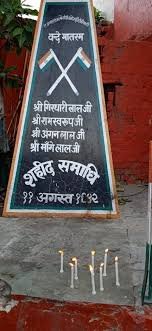 वन्दे मातरम
श्री गिरधारी लाल जी
श्री रामस्वरूप जी
श्री अंगन लाल जी
श्री माँगे लाल जी
शहीद समाधि
११ अगस्त १९४२